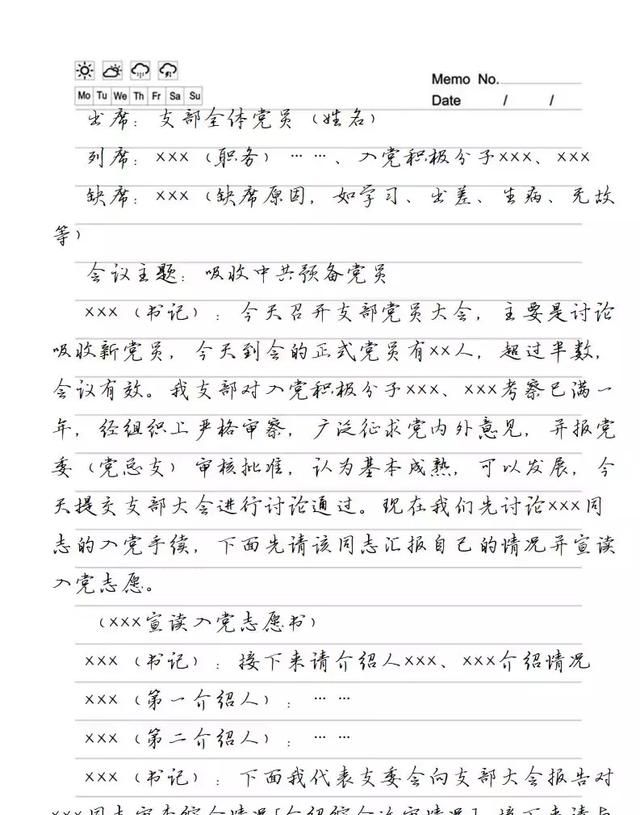 Memo No.
Mo Tu We Th Fr Sa Su
Date / /
出席：支部全体党员（姓名）
列席：×××（职务）……、入党积极分子×××、×××
缺席：×××（缺席原因，如学习、出差、生病、无故
等）
会议主题：吸收中共预备党员
×××（书记）：今天召开支部党员大会，主要是讨论
吸收新党员，今天到会的正式党员有××人，超过半数，
会议有效。我支部对入党积极分子×××、×××考察已满一
年，经组织上严格审察，广泛征求党内外意见，并报党
委（党总支）审核批准，认为基本成熟，可以发展，今
天提交支部大会进行讨论通过。现在我们先讨论×××同
志的入党手续，下面先请该同志汇报自己的情况并宣读
入党志愿。
（×××宣读入党志愿书）
×××（书记）：接下来请介绍人×××、×××介绍情况
×××（第一介绍人）：……
×××（第二介绍人）：……
×××（书记）：下面我代表支委会向支部大会报告对